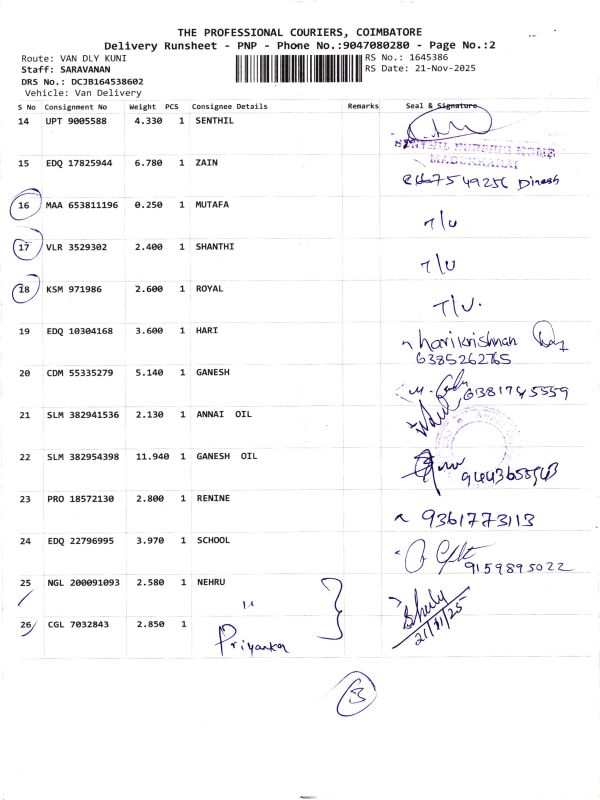 THE PROFESSIONAL COURIERS, COIMBATORE
Delivery Runsheet - PNP - Phone No.:9047080280 - Page No.:2
Route: VAN DLY KUNI RS No.: 1645386
Staff: SARAVANAN RS Date: 21-Nov-2025
DRS No.: DCJB164538602
Vehicle: Van Delivery
S No Consignment No Weight PCS Consignee Details Remarks Seal & Signature
14 UPT 9005588 4.330 1 SENTHIL
SENTHIL NURSING HOME
MADUKKARAI
15 EDQ 17825944 6.780 1 ZAIN
8667549256 Dinesh
16 MAA 653811196 0.250 1 MUTAFA T/U
17 VLR 3529302 2.400 1 SHANTHI T/U
18 KSM 971986 2.600 1 ROYAL T/U.
19 EDQ 10304168 3.600 1 HARI harikrishnan
6385262765
20 CDM 55335279 5.140 1 GANESH 6381745559
21 SLM 382941536 2.130 1 ANNAI OIL
22 SLM 382954398 11.940 1 GANESH OIL
23 PRO 18572130 2.800 1 RENINE 9361773113
24 EDQ 22796995 3.970 1 SCHOOL 9159895022
25 NGL 200091093 2.580 1 NEHRU
"
26 CGL 7032843 2.850 1 Priyanka 21/11/25